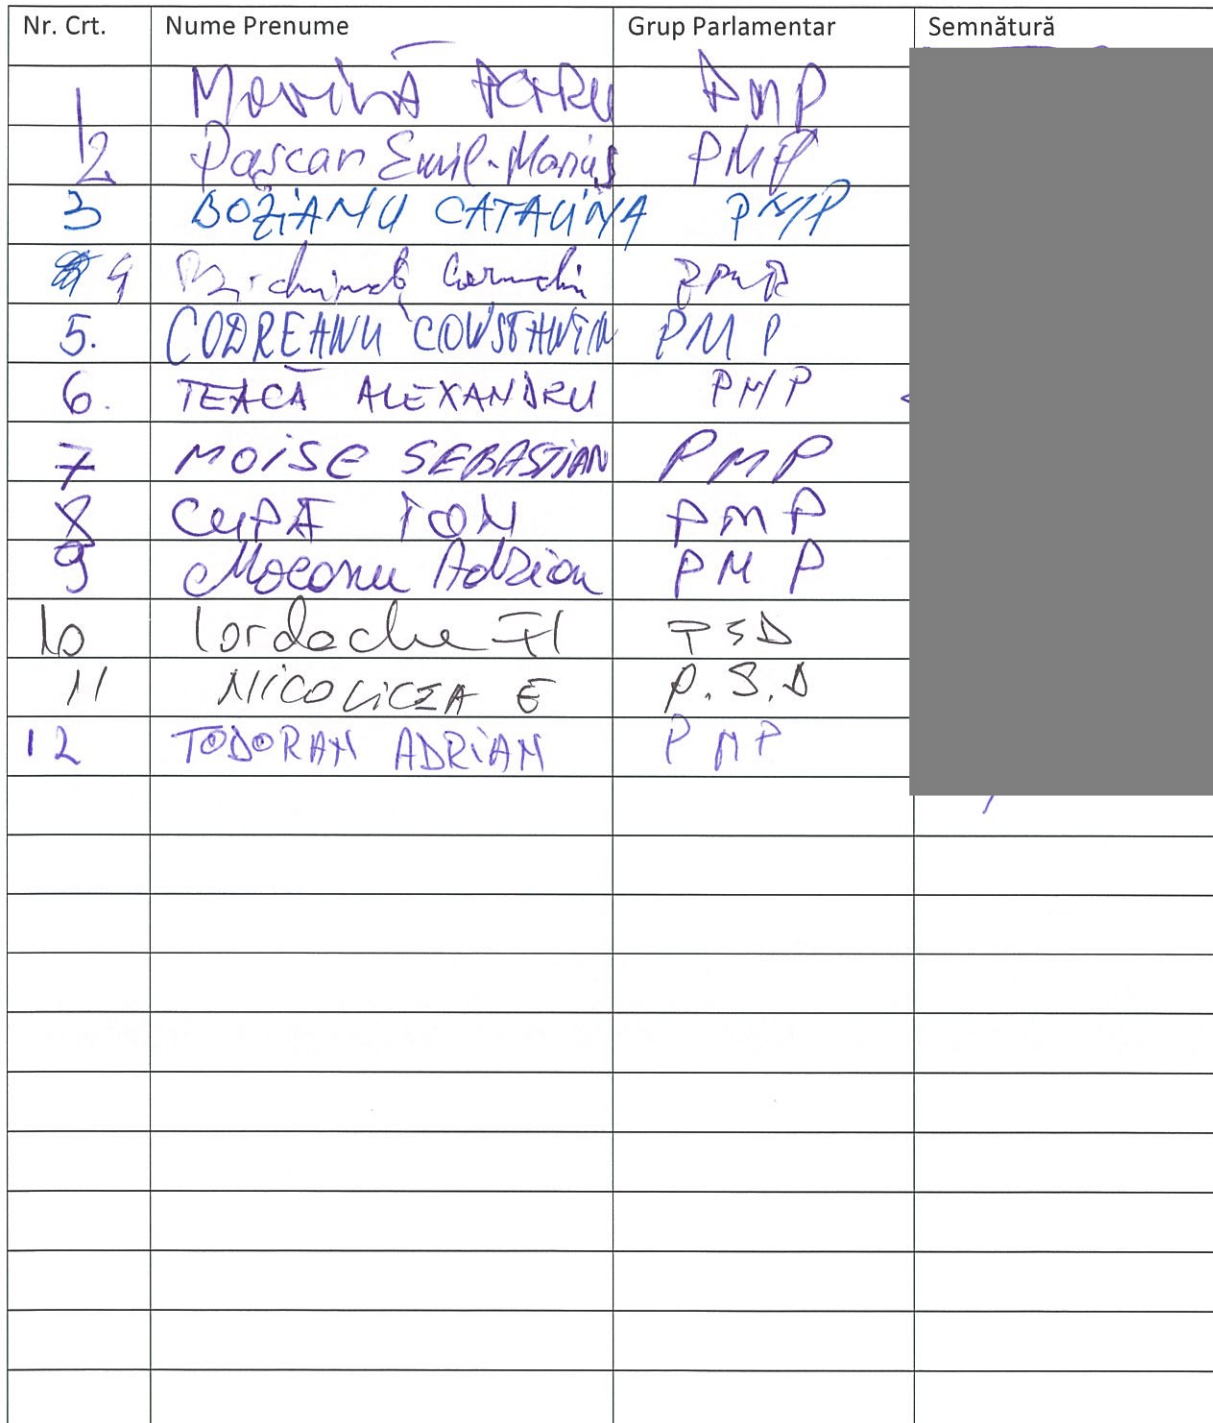 Nr. Crt. Nume Prenume Grup Parlamentar Semnătură
1 Movilă PETRU PMP
2 Pașcan Emil-Marius PMP
3 BOZIANU CATALINA PMP
4 PMP
5. CODREANU CONSTANTIN PMP
6. TEACĂ ALEXANDRU PMP
7 MOISE SEBASTIAN PMP
8 CUPĂ ION PMP
9 Mocanu Adrian PMP
10 Iordache Fl PSD
11 NICOLICEA E P.S.D
12 TODORAN ADRIAN PMP